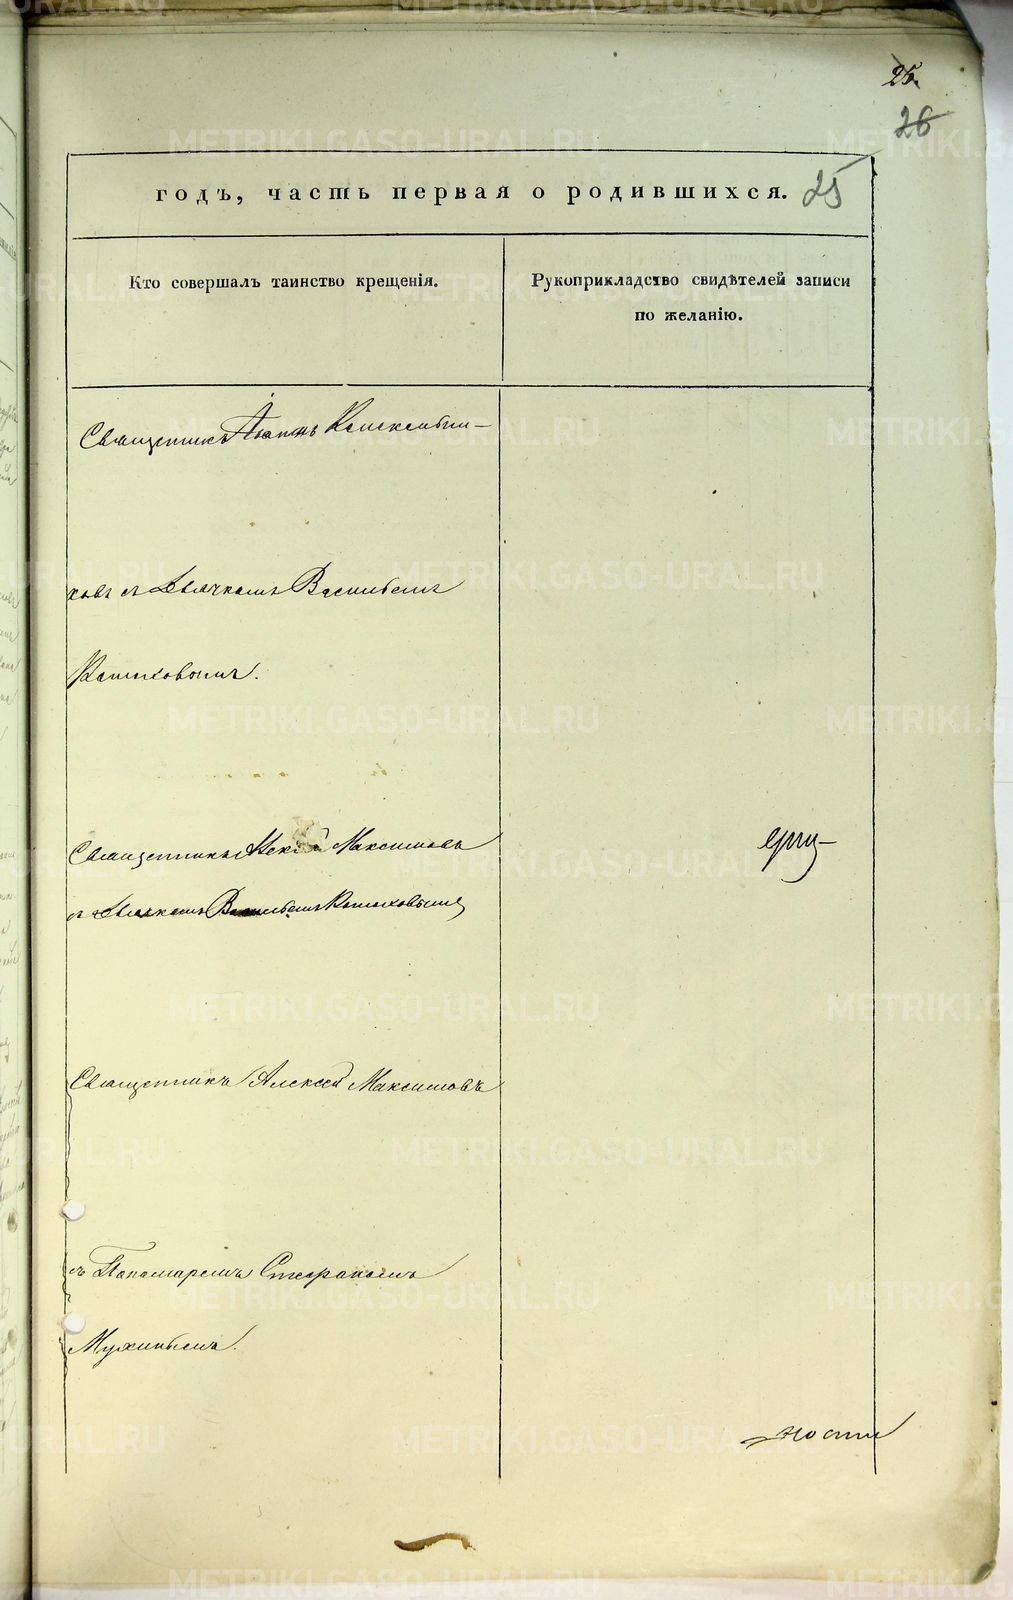 25.
26
25
годъ, часть первая о родившихся.
Кто совершалъ таинство крещенія.
Рукоприкладство свидѣтелей записи
по желанію.
Священникъ Іоаннъ
ковъ съ Дьячкомъ Васильемъ
Священникъ Максимовъ
съ Дьячкомъ Васильемъ
Священникъ Алексѣй Максимовъ
съ Понамаремъ Стефаномъ
Мухинымъ.
ности
METRIKI.GASO-URAL.RU